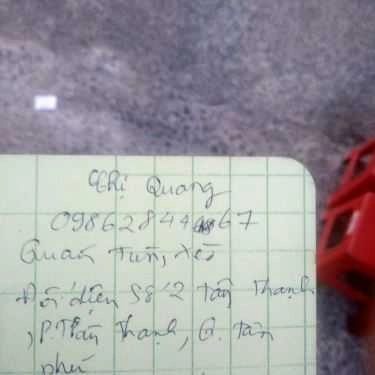 Chị Quang
0986284467
Quán
Đối diện 58/2 Tân Thạnh
, P. Tân Thạnh, Q. Tân
phú